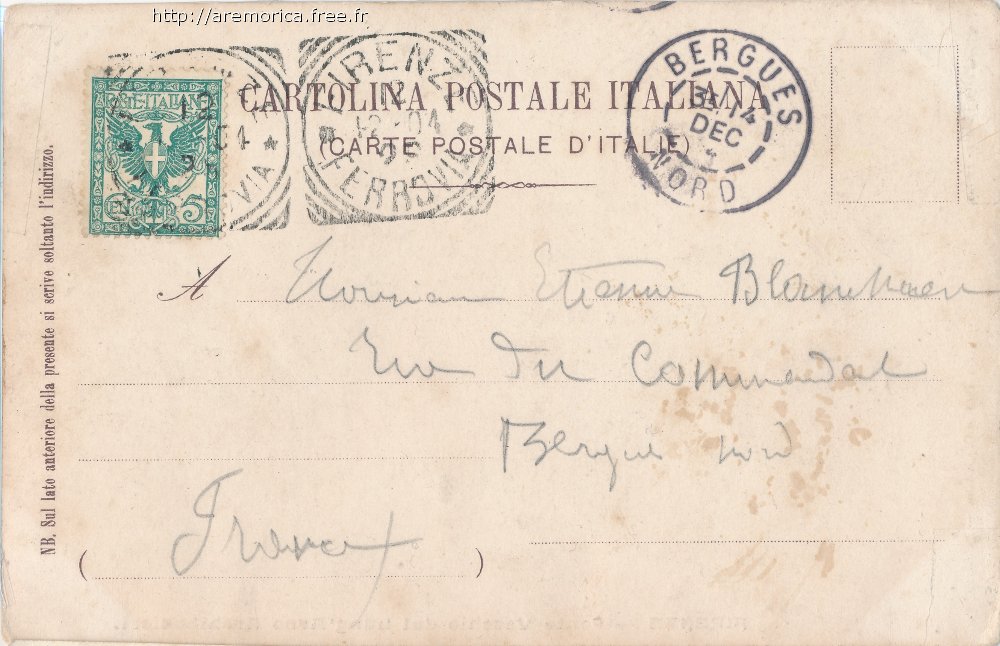 http://aremorica.free.fr
CARTOLINA POSTALE ITALIANA
(CARTE POSTALE D'ITALIE)
FIRENZE
12
12-04
FERROVIA
BERGUES
14
DEC
NORD
12
5
A Monsieur Etienne
Rue du Commandat
Bergues nord
(France)
NB. Sul lato anteriore della presente si scrive soltanto l'indirizzo.